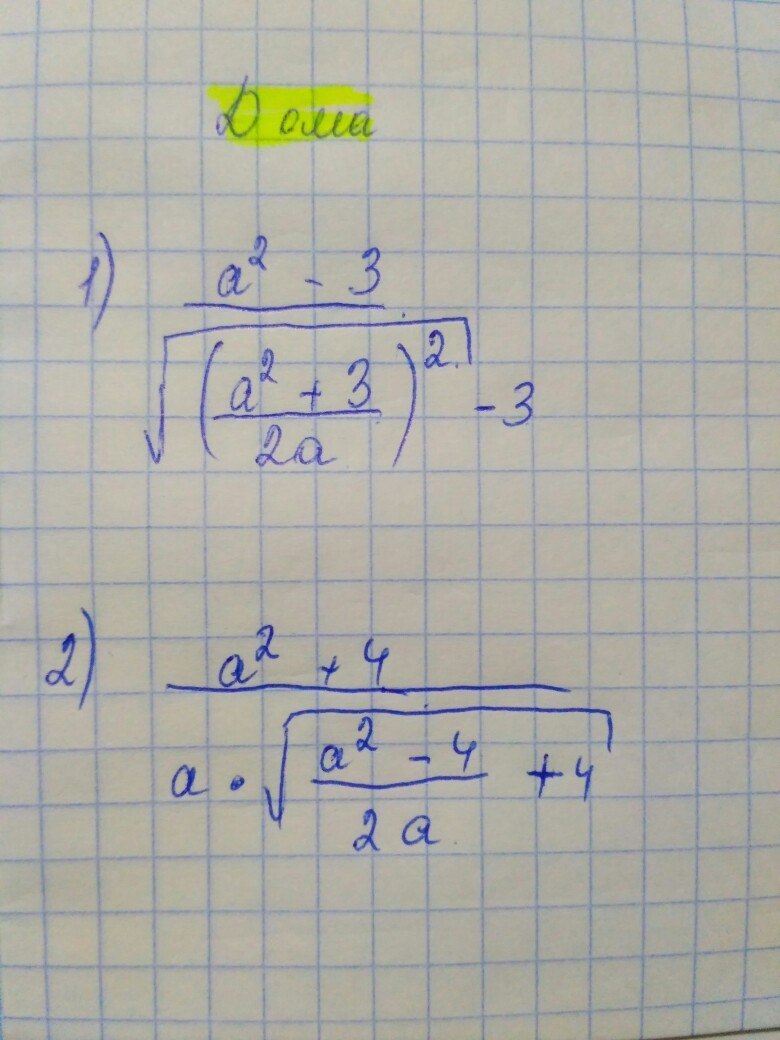 Дома
1) \frac{a^2 - 3}{\sqrt{\left(\frac{a^2 + 3}{2a}\right)^2} - 3}
2) \frac{a^2 + 4}{a \cdot \sqrt{\frac{a^2 - 4}{2a} + 4}}